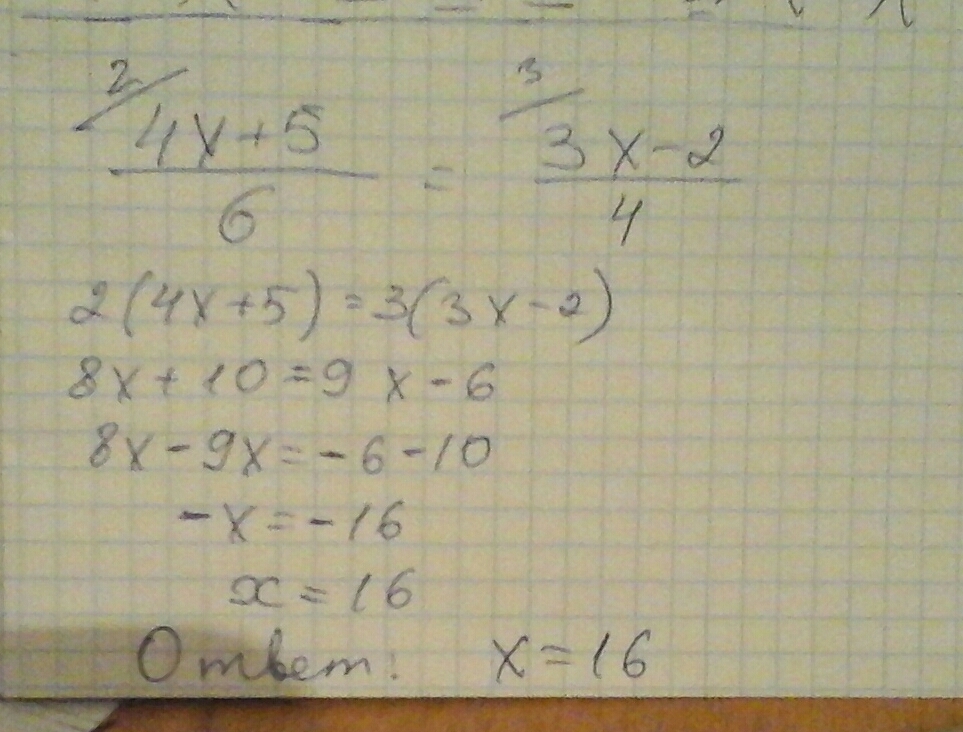 2/ 3/
4x+5 = 3x-2
6 4
2(4x+5)=3(3x-2)
8x+10=9x-6
8x-9x=-6-10
-x=-16
x=16
Ответ: x=16